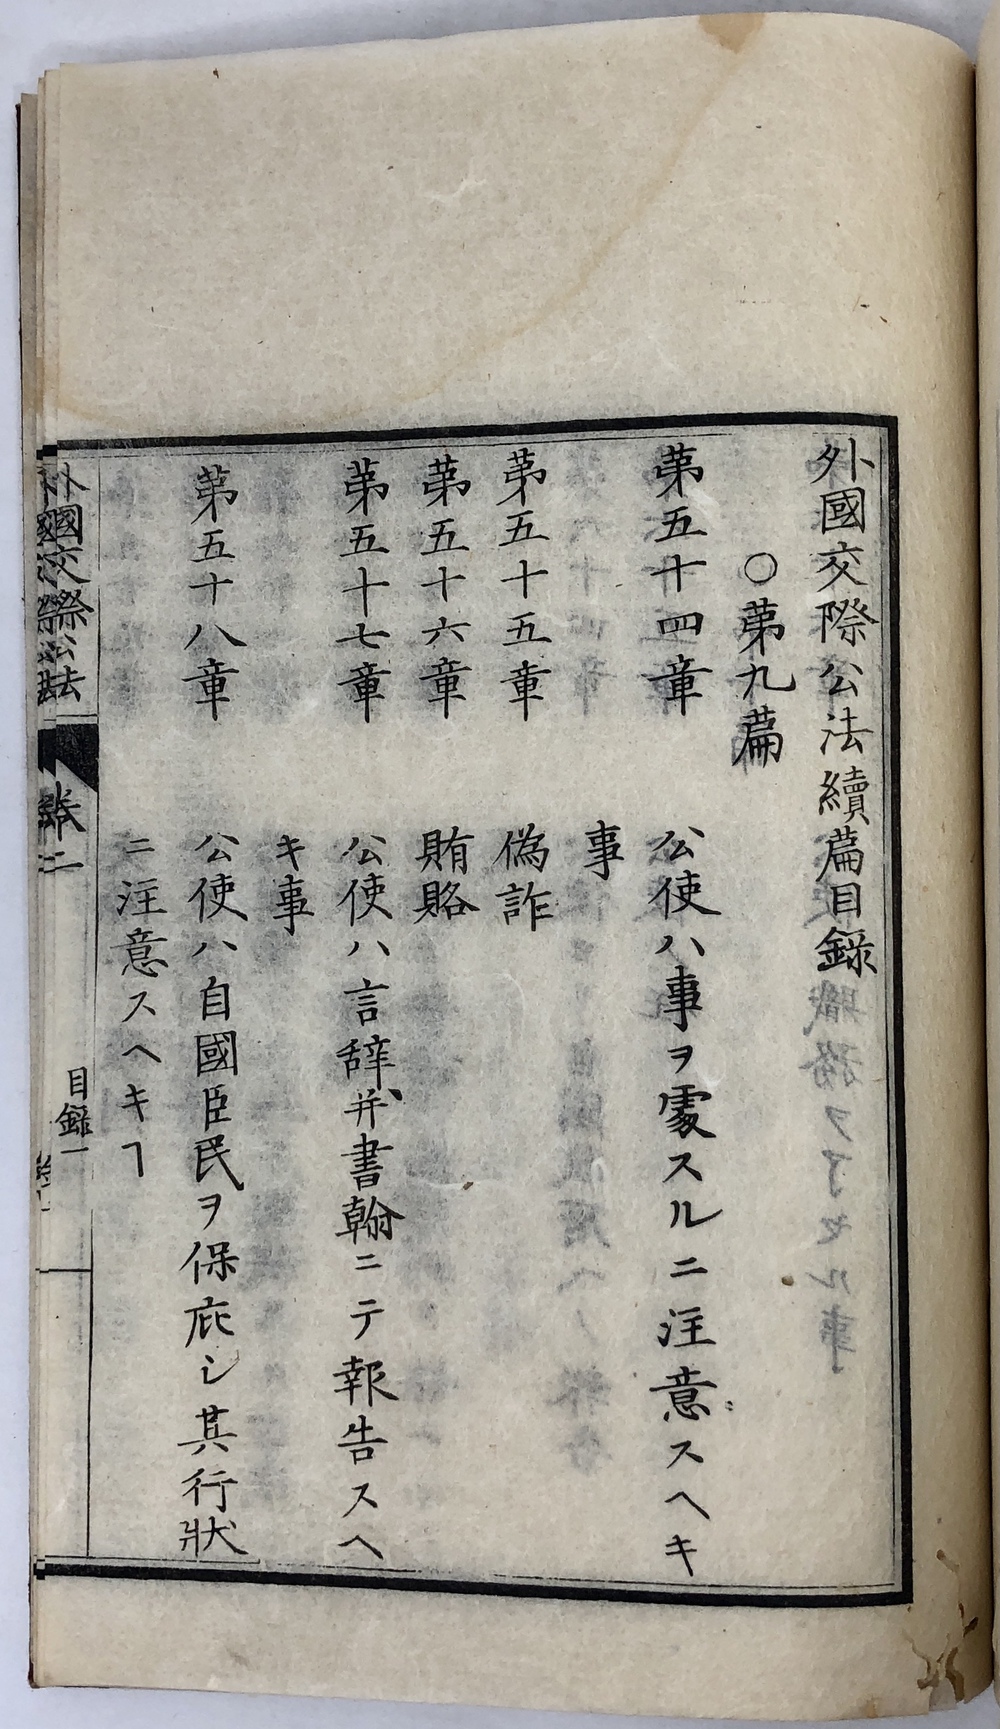 外國交際公法續篇目録
〇第九篇
第五十四章 公使ハ事ヲ處スルニ注意スヘキ
事
第五十五章 偽詐
第五十六章 賄賂
第五十七章 公使ハ言辞并書翰ニテ報告スヘ
キ事
第五十八章 公使ハ自國臣民ヲ保庇シ其行狀
ニ注意スヘキヿ
外國交際公法 卷二 目錄一